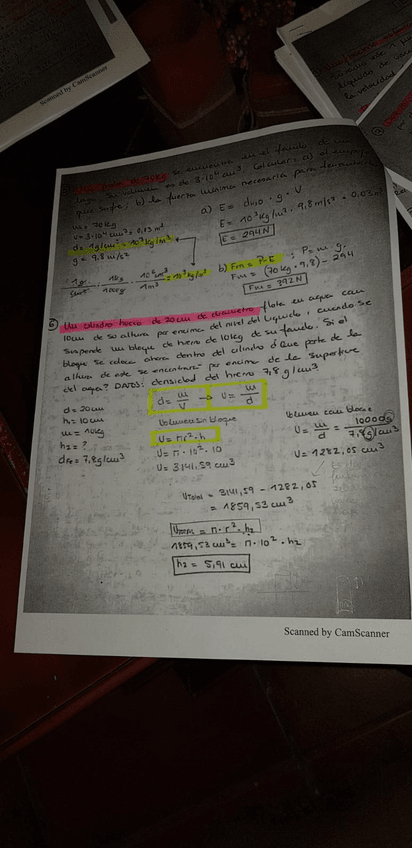 Scanned by CamScanner
70kg se encuentra en el fondo de un
lago. Su volumen es de 3·10⁴ cm³. Calcular: a) el empuje
que sufre; b) la fuerza mínima necesaria para
m = 70kg
V = 3·10⁴cm³ = 0,03m³
d = 1g/cm³ = 10³kg/m³
g = 9,8 m/s²
a) E = dH₂O · g · V
E = 10³kg/m³ · 9,8m/s² · 0,03m³
E = 294N
1g/cm³ · 1kg/1000g · 10⁶cm³/1m³ = 10³kg/m³
b) Fm = P-E, P = m·g.
Fm = (70kg · 9,8) - 294
Fm = 392N
⑥ Un cilindro hueco de 20cm de diametro flota en agua con
10cm de su altura por encima del nivel del líquido, cuando se
suspende un bloque de hierro de 10kg de su fondo. Si el
bloque se coloca ahora dentro del cilindro ¿Que parte de la
altura de este se encontrara por encima de la superficie
del agua? DATOS: densidad del hierro 7,8g/cm³
d = 20cm
h₁ = 10cm
m = 10kg
h₂ = ?
dFe = 7,8g/cm³
d = m/V → V = m/d
Volumen sin bloque
V = πr²·h
V = π·10²·10
V = 3141,59 cm³
Volumen con bloque
V = m/d = 10000g/7,8g/cm³
V = 1282,05 cm³
VTOTAL = 3141,59 - 1282,05
= 1859,53 cm³
= π·r²·h₂
1859,53 cm³ = π·10²·h₂
h₂ = 5,91 cm
Scanned by CamScanner